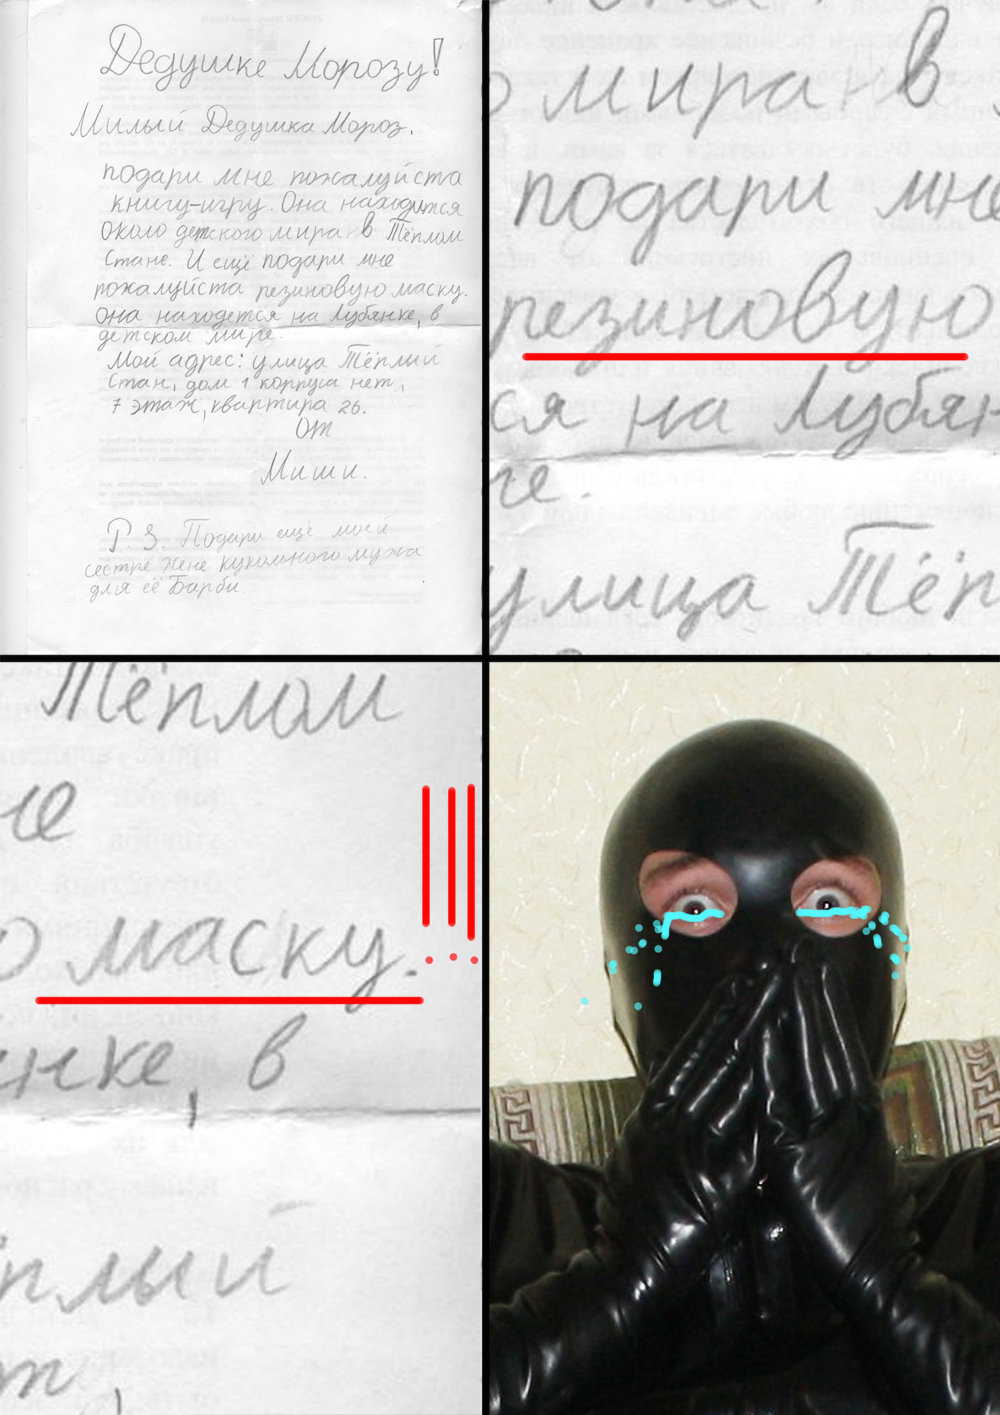 Дедушке Морозу!
Милый Дедушка Мороз.
подари мне пожалуйста
книгу-игру. Она находится
около детского мира в Тёплом
Стане. И ещё подари мне
пожалуйста резиновую маску.
она находется на Лубянке, в
детском мире.
Мой адрес: улица Тёплый
Стан, дом 1 корпуса нет,
7 этаж, квартира 26.
От
Миши.
P. S. Подари ещё моей
сестре Жене кукольного мужа
для её Барби
о мира в
подари мне
резиновую
ся на Лубян
ре.
улица Тёп
Тёплом
не
ю маску.
янке, в
ёплый
т,